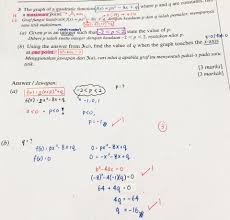 3 The graph of a quadratic function f(x) = px² − 8x + q, where p and q are constants, has
a maximum point.
Graf fungsi kuadratik f(x) = px² − 8x + q, dengan keadaan p dan q ialah pemalar, mempunyai
titik maksimum.
(a) Given p is an integer such that −2 < p < 2, state the value of p.
Diberi p ialah suatu integer dengan keadaan −2 < p < 2, nyatakan nilai p.
(b) Using the answer from 3(a), find the value of q when the graph touches the x-axis
at one point.
Menggunakan jawapan dari 3(a), cari nilai q apabila graf menyentuh paksi-x pada satu
titik.
[3 marks]
[3 markah]
Answer / Jawapan:
(a) −2 < p < 2
f(x) = px² − 8x + q
−1, 0, 1
p < 0
p = −1
3
(b) q = ?
f(x) = px² − 8x + q
f(x) = 0
0 = −x² − 8x + q
b² − 4ac = 0
(−8)² − 4(−1)(q) = 0
64 + 4q = 0
4q = −64
q = −16